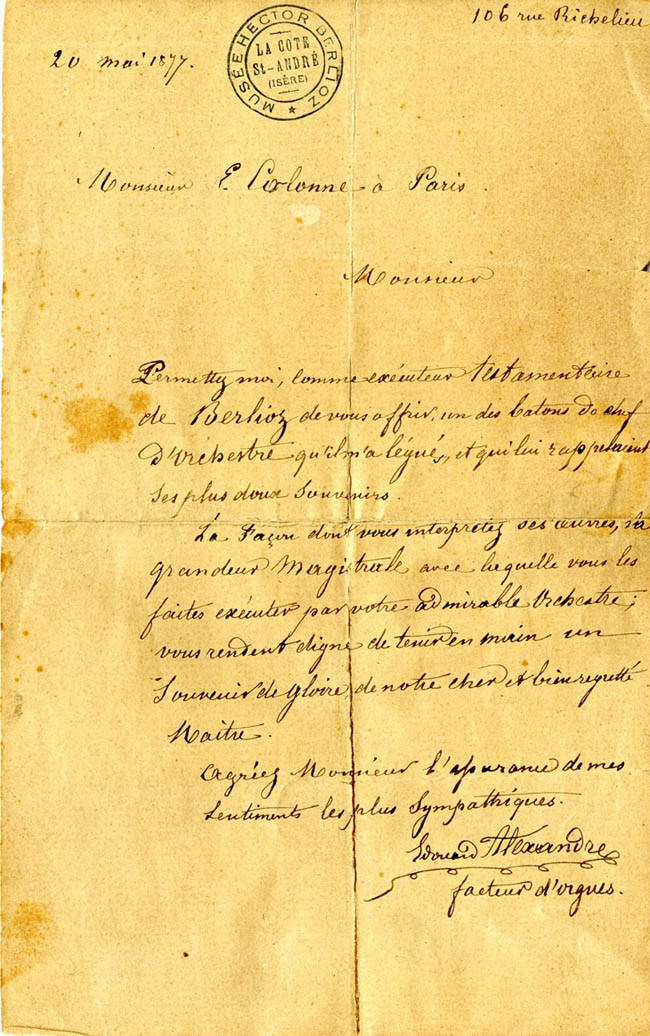 106 rue Richelieu
20 mai 1877.
MUSÉE HECTOR BERLIOZ
LA COTE
St-ANDRÉ
(ISÈRE)
Monsieur E. Colonne à Paris.
Monsieur
Permettez moi, comme exécuteur testamentaire
de Berlioz de vous offrir, un des batons de chef
D'Orchestre qu'il m'a légués, et qui lui rappelaient
ses plus doux souvenirs.
La Façon dont vous interpretez ses œuvres, la
grandeur Magistrale avec laquelle vous les
faites exécuter par votre admirable Orchestre;
vous rendent digne de tenir en main un
Souvenir de gloire, de notre cher et bien regretté
Maitre.
Agréez Monsieur l'assurance de mes
sentiments les plus sympathiques.
Edouard Alexandre
facteur d'orgues.